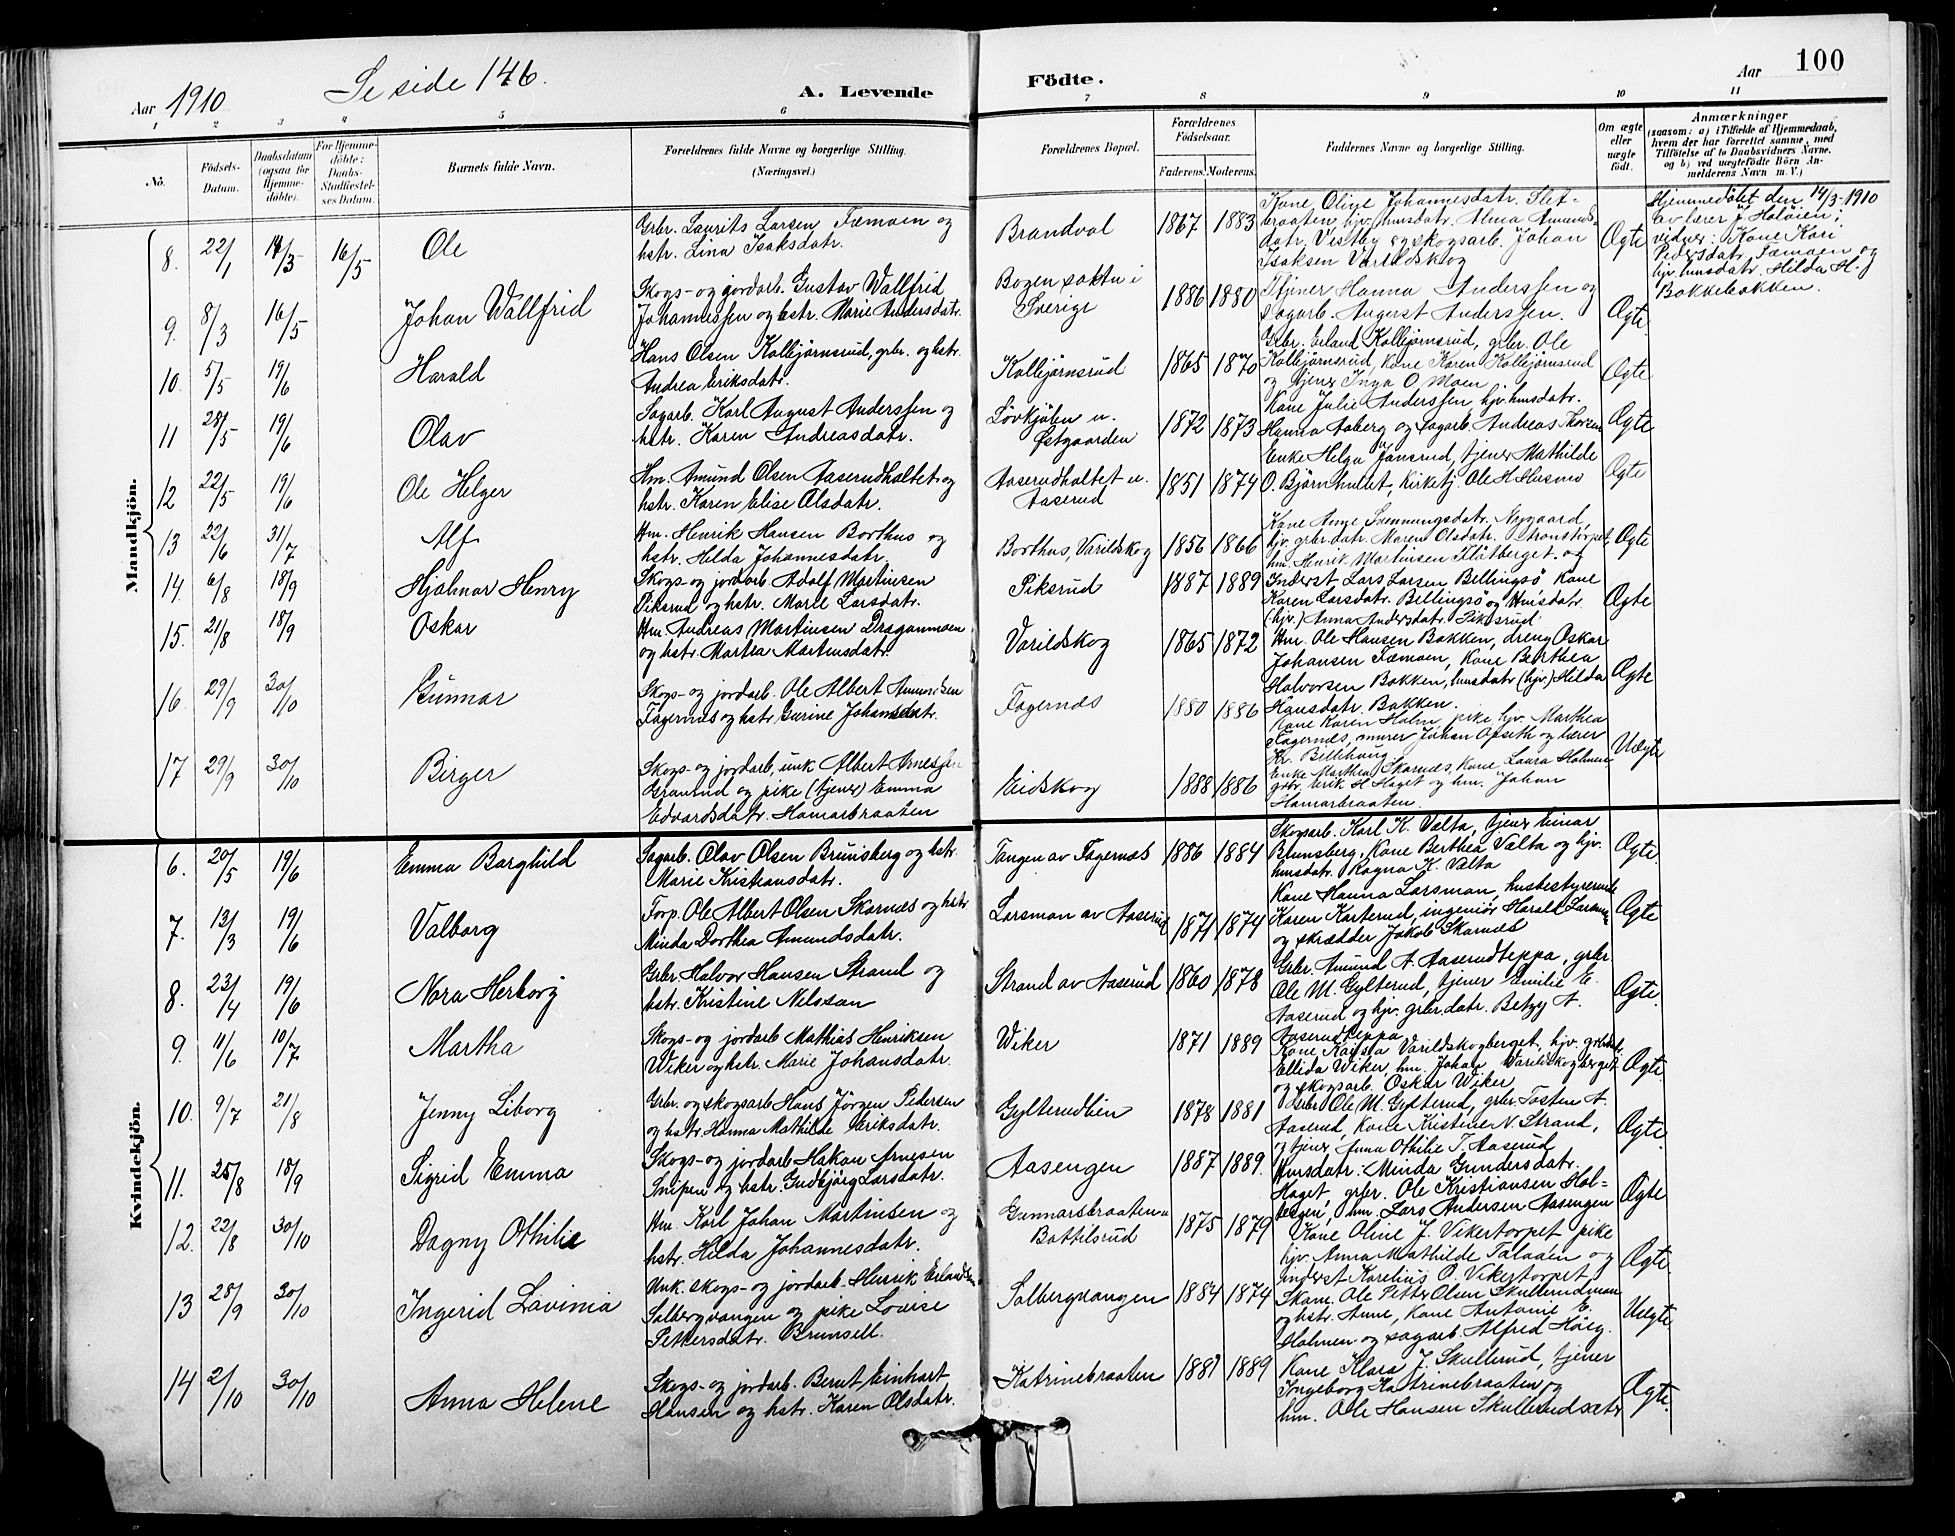 Aar 1910
Se side 146.
A. Levende
Födte.
Aar
100
1 2 3 4 5 6 7 8 9 10 11
No.
Födsels-
Datum.
Daabsdatum
(ogsaa for
Hjemme-
döbte).
For Hjemme-
döbte:
Daabs-
Stadfæstel-
ses Datum.
Barnets fulde Navn.
Forældrenes fulde Navne og borgerlige Stilling.
(Næringsvei.)
Forældrenes Bopæl.
Forældrenes
Födselsaar.
Faderens.
Moderens.
Faddernes Navne og borgerlige Stilling.
Om ægte
eller
uægte
født.
Anmærkninger
(saasom: a) i Tilfælde af Hjemmedaab,
hvem der har forrettet samme, med
Tilföielse af to Daabsvidners Navne.
og b) ved uægtefödte Börn An-
melderens Navn m. V.)
Mandkjön.
8. 22/1 14/3 16/5 Ole
Grbr. Laurits Larsen Tæmoen og
hstr. Lina Isaksdatr.
Brandval 1867 1883
Kone Oline Johannesdatr. Slet-
braaten, hjv. husdatr. Alma Amunds-
datr. Vestby og skogsarb. Johan
Isaksen Varildskog
Ægte
Hjemmedöbt den 14/3-1910
av lærer J. Holöien;
vidner: Kone Kari
Pedersdatr. Tæmoen og
hjv. husdatr. Hilda H.
Bakkebakken.
9. 8/3 16/5 Johan Wallfrid
Skogs- og jordarb. Gustav Wallfrid
Johannessen og hstr. Marie Andersdatr.
Bogen sokn i
Sverige
1886 1880
Tjener Hanna Anderssen og
Sagarb. August Anderssen.
Ægte
10. 5/5 19/6 Harald
Hans Olsen Kolbjørnsrud, grbr. og hstr.
Andrea Eriksdatr.
Kolbjørnsrud 1865 1870
Grbr. Erland Kolbjørnsrud, grbr. Ole
Kolbjørnsrud, Kone Karen Kolbjørnsrud
og tjener Inga O. Moen
Ægte
11 28/5 19/6 Olav
Sagarb. Karl August Anderssen og
hstr. Karen Andreasdatr.
Lövkjölen u.
Østgaarden
1872 1873
Kone Julie Anderssen hjv. husdatr.
Hanna Aaberg og Sagarb. Andreas
Ægte
12 22/5 19/6 Ole Helger
Hm. Amund Olsen Aaserudholtet og
hstr. Karen Elise Olsdatr.
Aaserudholtet u.
Aaserud
1851 1874
Enke Helga Jansrud, tjener Mathilde
O. Bjørnhullet, Kirketj. Ole H. Husmo
Ægte
13 22/6 31/7 Alf
Hm. Henrik Hansen Borthus og
hstr. Hilda Johannesdatr.
Borthus, Varildskog 1856 1866
Kone Anne Svennungsdatr. Nygaard,
hjv. grbr.datr. Maren Olsdatr.
hm. Henrik Martinsen Flåtberget. og
Ægte
14. 6/8 18/9 Hjalmar Henry
Skogs- og jordarb Adolf Martinsen
Piksrud og hstr. Marie Larsdatr.
Piksrud 1887 1889
Inderst Lars Larsen Bellingsö Kone
Karen Larsdatr. Bellingsö og Husdatr.
(hjv.) Anna Andersdatr. Piksrud
Ægte
15. 21/8 18/9 Oskar
Hm. Andreas Martinsen Draganmoen
og hstr. Martea Martinsdatr.
Varildskog 1865 1872
Hm. Ole Hansen Bakken, dreng Oskar
Johansen Tæmoen, Kone Berthea
Halvorsen Bakken, husdatr. (hjv.) Hilda
Hansdatr. Bakken.
Ægte
16. 29/9 30/10 Gunnar
Skogs- og jordarb. Ole Albert Amundsen
Fagernæs og hstr. Gurine Johansdatr.
Fagernæs 1880 1886
Kone Karen Holm, pike hjv. Marthea
Fagernæs, murer Johan Opseth og lærer
Kr. Billihaug
Uægte
17 29/9 30/10 Birger
Skogs- og jordarb, unk Albert Arnessen
Graund og pike (tjener) Emma
Edvardsdatr. Hamarbraaten
Eidskog 1888 1886
Enke Marthea Skarnæs, Kone Laura Holmen
grbr. Erik H. Haget og hm. Johan
Hamarbraaten.
Kvindekjön.
6. 20/5 19/6 Emma Borghild
Sagarb. Olav Olsen Brunsberg og hstr.
Marie Kristiansdatr.
Tangen av Fagernæs 1886 1884
Skogsarb. Karl K. Valta, tjener Einar
Brunsberg, Kone Berthea Valta og hjv.
husdatr. Ragna K. Valta
Ægte
7. 13/3 19/6 Valborg
Torp. Ole Albert Olsen Skarnæs og hstr
Minda Dorthea Amundsdatr.
Larsmon av Aaserud 1871 1874
Kone Hanna Larsmon, husbestyrerinde
Karen Karterud, ingeniör Harald Larsmon
og skrædder Jakob Skarnæs
Ægte
8. 23/4 19/6 Nora Herborg
Grbr. Halvor Hansen Strand og
hstr. Kristine Nelssan
Strand av Aaserud 1860 1878
Grbr. Amund A. Aaserudteppa, grbr
Ole M. Gylterud, tjener Emilie E.
Aaserud og hjv. grbr.datr. Betzy A.
Aaserudteppa
Ægte.
9. 11/6 10/7 Martha
Skogs- og jordarb Mathias Henriksen
Wiker og hstr. Marie Johansdatr.
Wiker 1871 1889
Kone Kajsa Varildskogberget, hjv. grbrdtr.
Ellida Wiker, hm. Johan Varildskogberget
og skogsarb. Oskar Wiker
Ægte.
10. 9/7 21/8 Jenny Liborg
Grbr. og skogsarb Hans Jörgen Pedersen
og hstr. Hanna Mathilde Eriksdatr.
Gylterudlien 1878 1881
Grbr Ole M. Gylterud, grbr Tosten A.
Aaserud, Kone Kristine N. Strand,
og tjener Anna Othilie T. Aaserud
Ægte.
11. 25/8 18/9 Sigrid Emma
Skogs- og jordarb Hakan Arnesen
Snipen og hstr. Gudbjörg Larsdatr.
Aasengen 1887 1889.
Husdatr. Minda Gundersdatr.
Haget, grbr. Ole Kristiansen Hol-
tegen, hm. Lars Andersen Aasengen
Ægte
12. 22/8 30/10 Dagny Othilie
Hm. Karl Johan Martinsen og
hstr. Hilda Johannesdatr.
Gunnarsbraaten u
Bottilsrud
1875 1879
Kone Oline J. Vikertorpet pike
hjv. Anna Mathilde Talaaen og
inderst Karelius O. Vikertorpet
Ægte.
13 28/9 30/10 Ingerid Lavinia
Unk. skogs- og jordarb. Henrik Erlandsen
Solbergvangen og pike Lovise
Pettersdatr. Brunsell.
Solbergvangen 1884 1874
Skom. Ole Petter Olsen Skullerudmon
og hstr. Anne, Kone Antonie E.
Holmen og sagarb. Alfred Höeg.
Uægte
14 2/10 30/10 Anna Helene
Skogs- og jordarb. Bernt Einhart
Hansen og hstr. Karen Olsdatr.
Katrinebraaten 1881 1889
Kone Klara J. Skullerud, tjener
Ingeborg Katrinebraaten og
hm. Ole Hansen Skullerudsætr
Ægte.